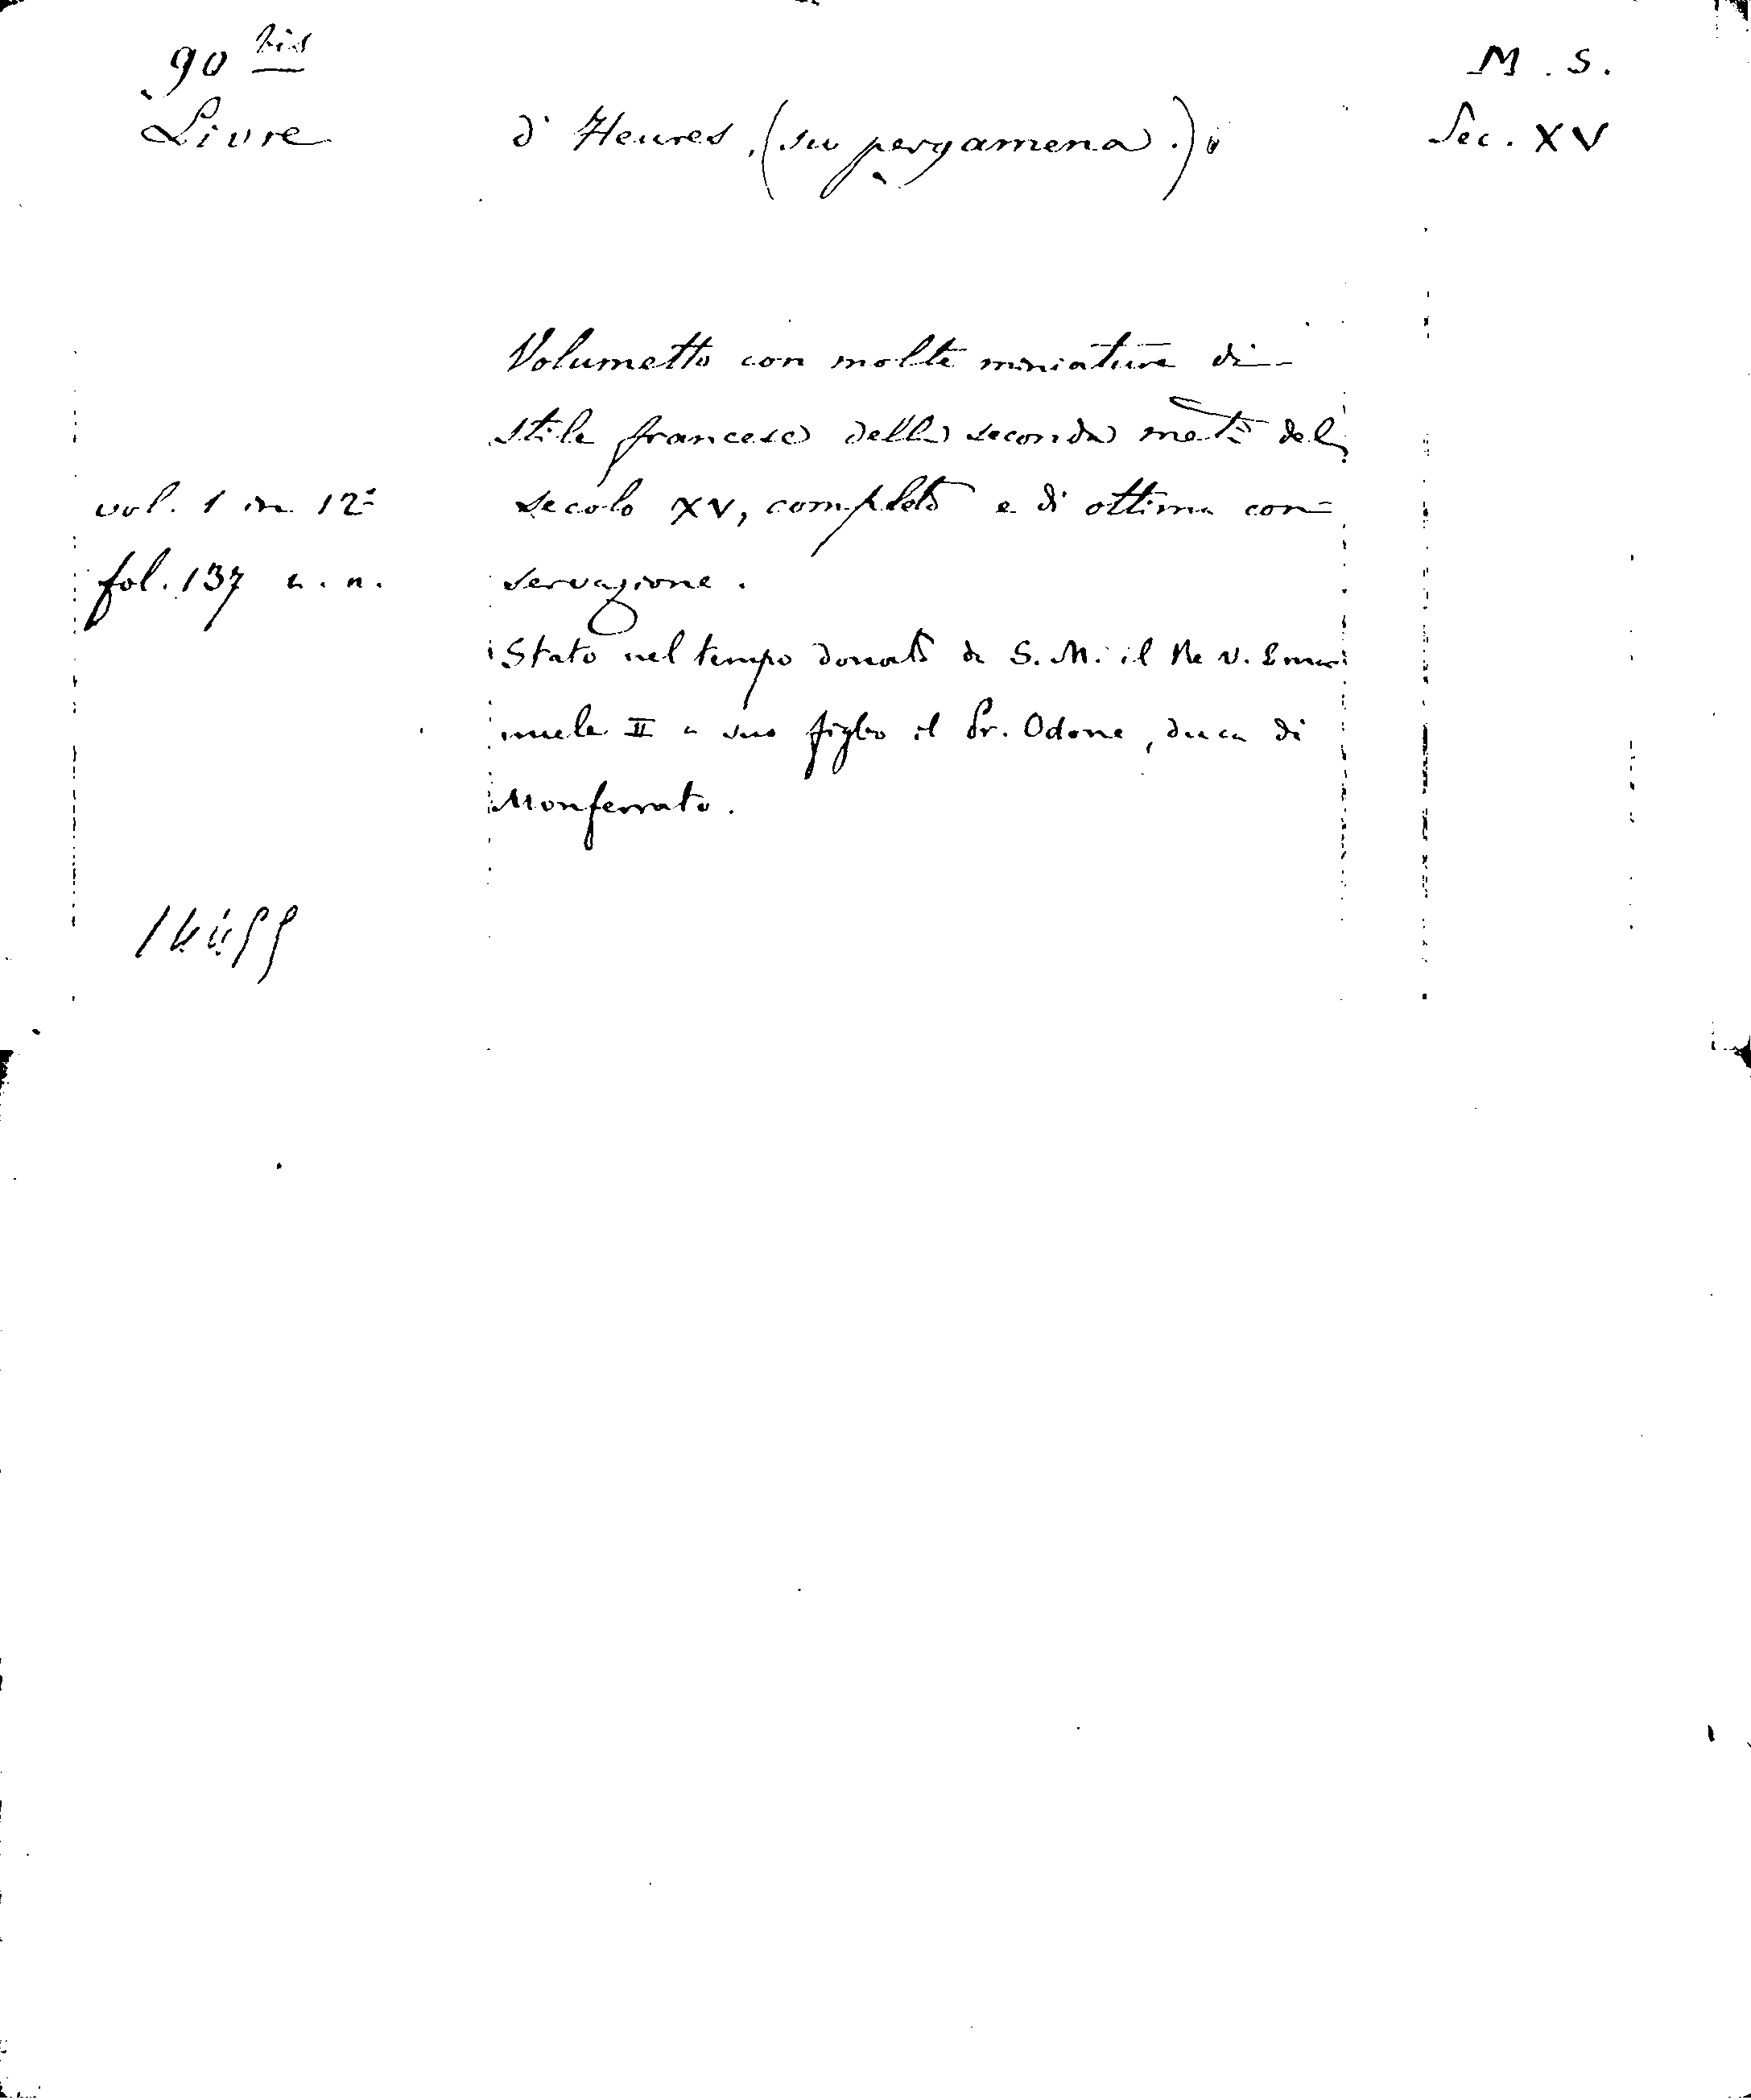 90 bis
M. S.
Livre d'Heures, (su pergamena.)
Sec. XV
Volumetto con molte miniature di
stile francese della seconda metà del
vol. 1 in 12°
secolo XV, completo e di ottima con=
fol. 137 n. n.
servazione.
Stato nel tempo donato da S. M. il Re V. Ema
nuele II a suo figlio il Pr. Odone, duca di
Monferrato.